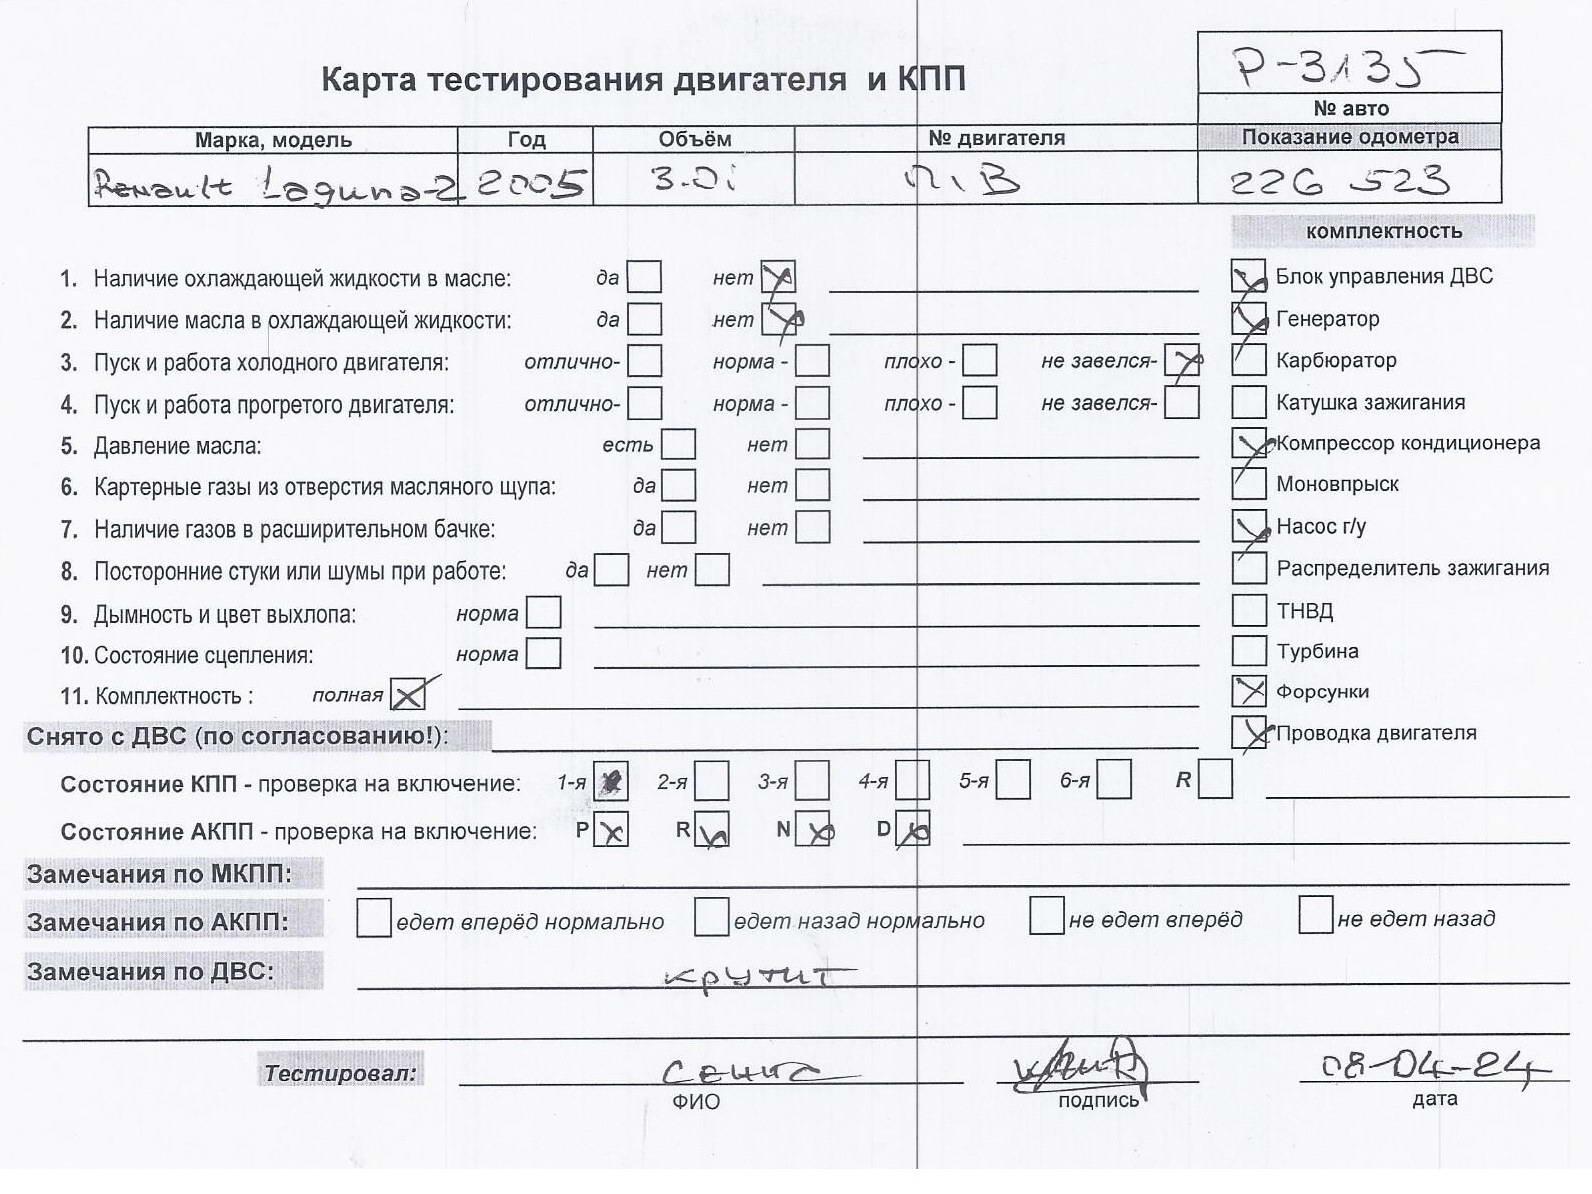 Р-3135
Карта тестирования двигателя и КПП
№ авто
Марка, модель Год Объём № двигателя Показание одометра
Renault Laguna-2 2005 3.0i 226 523
комплектность
1. Наличие охлаждающей жидкости в масле: да нет Блок управления ДВС
2. Наличие масла в охлаждающей жидкости: да нет Генератор
3. Пуск и работа холодного двигателя: отлично- норма - плохо - не завелся- Карбюратор
4. Пуск и работа прогретого двигателя: отлично- норма - плохо - не завелся- Катушка зажигания
5. Давление масла: есть нет Компрессор кондиционера
6. Картерные газы из отверстия масляного щупа: да нет Моновпрыск
7. Наличие газов в расширительном бачке: да нет Насос г/у
8. Посторонние стуки или шумы при работе: да нет Распределитель зажигания
9. Дымность и цвет выхлопа: норма ТНВД
10. Состояние сцепления: норма Турбина
11. Комплектность : полная Форсунки
Снято с ДВС (по согласованию!): Проводка двигателя
Состояние КПП - проверка на включение: 1-я 2-я 3-я 4-я 5-я 6-я R
Состояние АКПП - проверка на включение: P R N D
Замечания по МКПП:
Замечания по АКПП: едет вперёд нормально едет назад нормально не едет вперёд не едет назад
Замечания по ДВС: крутит
Тестировал: 08-04-24
ФИО подпись дата